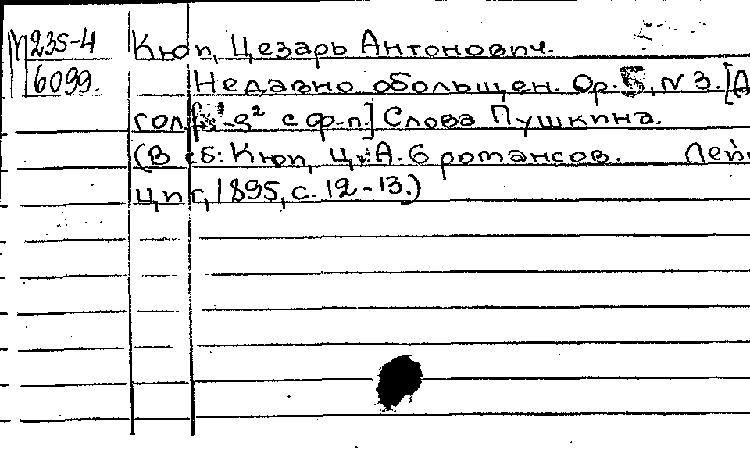 М 235-4 Кюи, Цезарь Антонович.
6099. Недавно обольщен. Ор. 5, N 3. [Д
гол. -g² с ф-п] Слова Пушкина.
(В сб: Кюи, Ц. А. 6 романсов. Лей
циг, 1895, с. 12-13.)